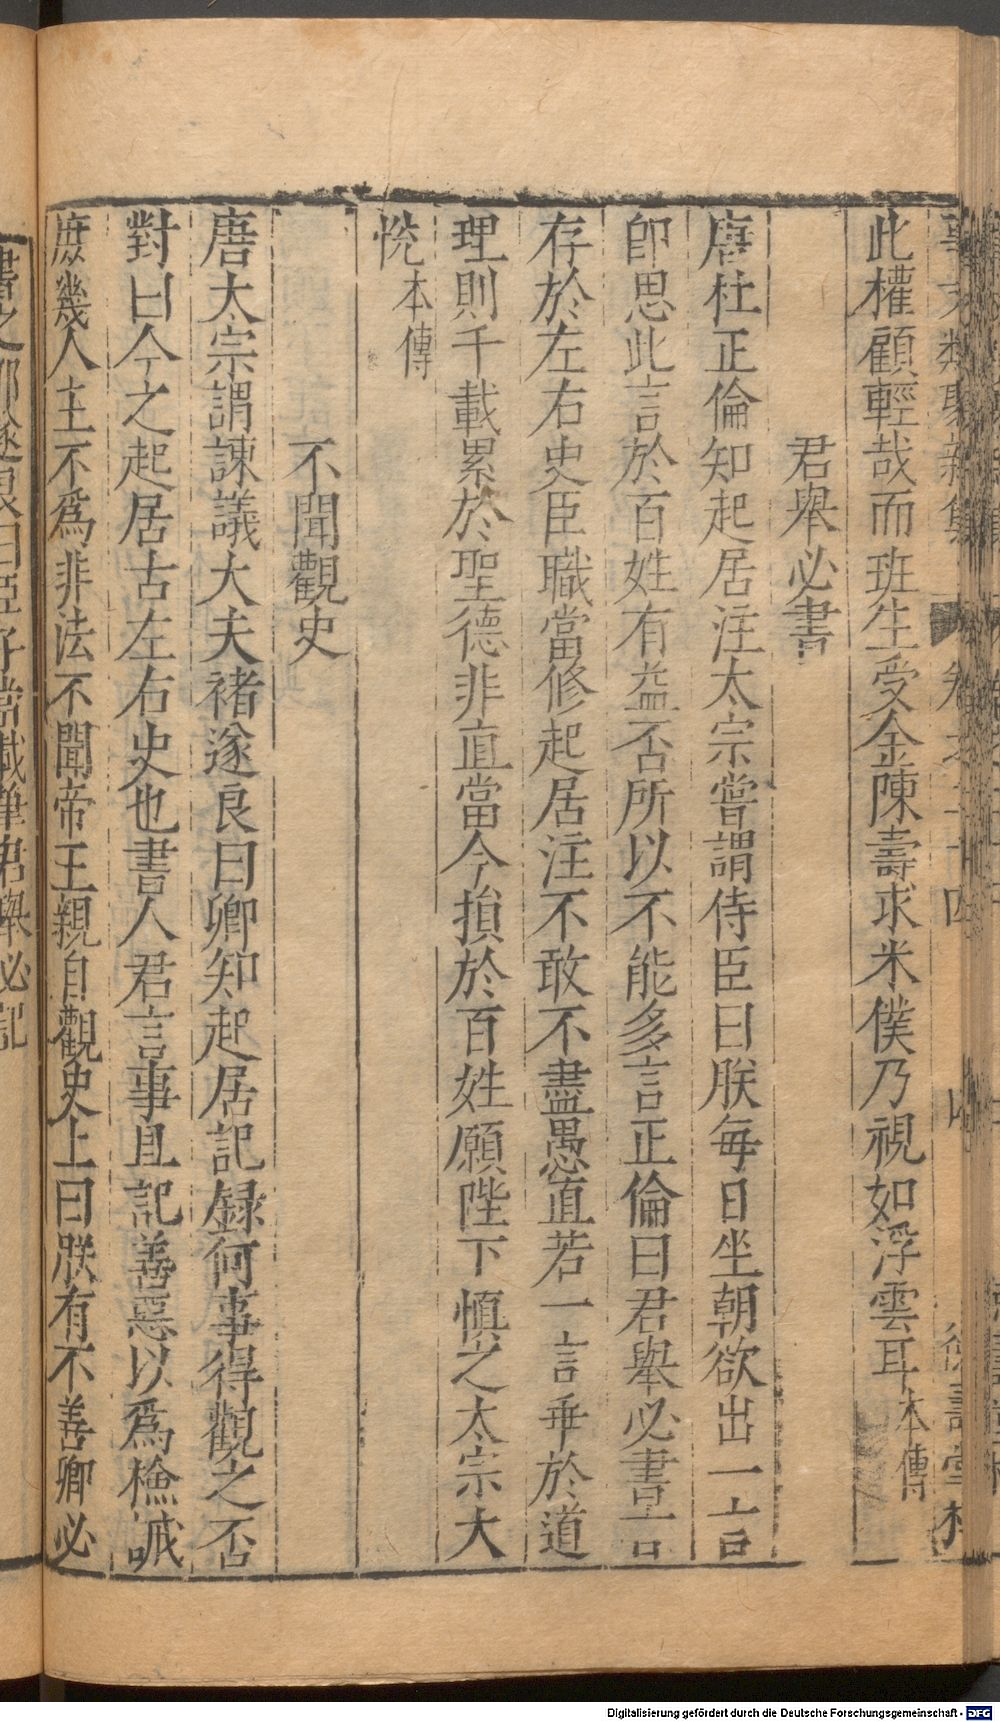 事文類聚新集 卷之二十四 德壽堂梓
此權顧輕哉而班生受金陳壽求米僕乃視如浮雲耳本傳
君舉必書
唐杜正倫知起居注太宗嘗謂侍臣曰朕每日坐朝欲出一言
即思此言於百姓有益否所以不能多言正倫曰君舉必書言
存於左右史臣職當修起居注不敢不盡愚直若一言乖於道
理則千載累於聖德非直當今損於百姓願陛下慎之太宗大
悅本傳
不聞觀史
唐太宗謂諫議大夫褚遂良曰卿知起居記録何事得觀之否
對曰今之起居古左右史也書人君言事且記善惡以為檢誡
庶幾人主不為非法不聞帝王親自觀史上曰朕有不善卿必
書之耶遂良曰臣 當載筆君舉必記
Digitalisierung gefördert durch die Deutsche Forschungsgemeinschaft - DFG